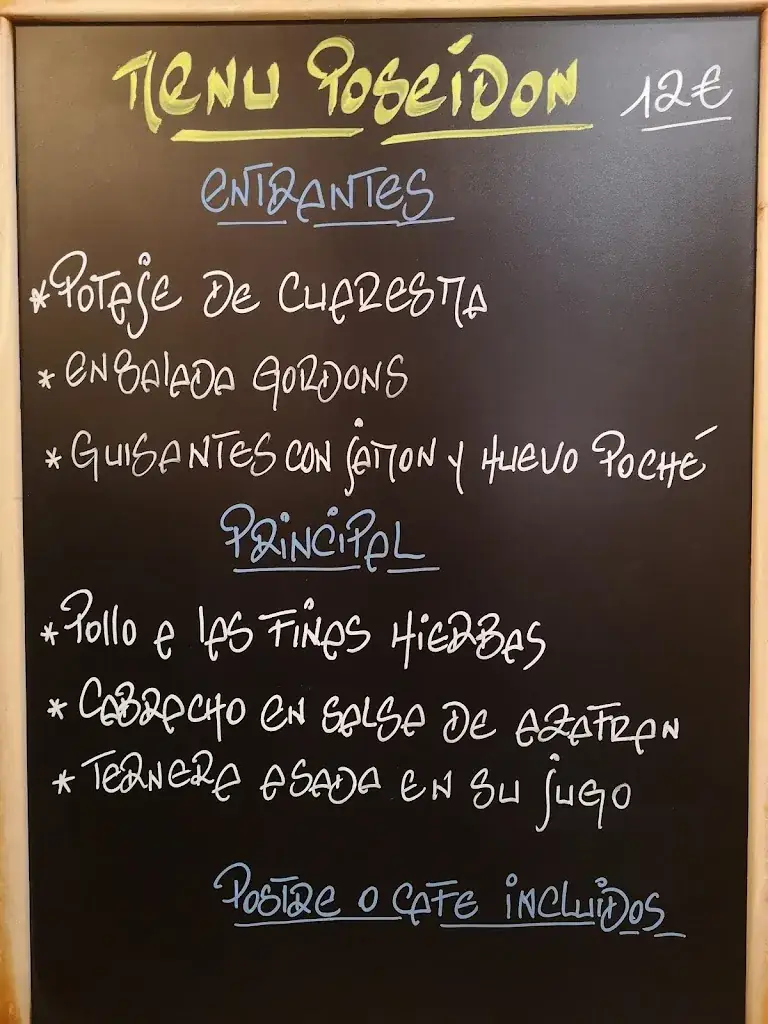 MENU POSEIDON 12€
ENTRANTES
* POTAJE DE CUARESMA
* ENSALADA GORDONS
* GUISANTES CON JAMON Y HUEVO POCHÉ
PRINCIPAL
* Pollo a las FINAS HIERBAS
* CABRACHO EN SALSA DE AZAFRAN
* TERNERA ASADA EN SU JUGO
POSTRE O CAFE INCLUIDOS